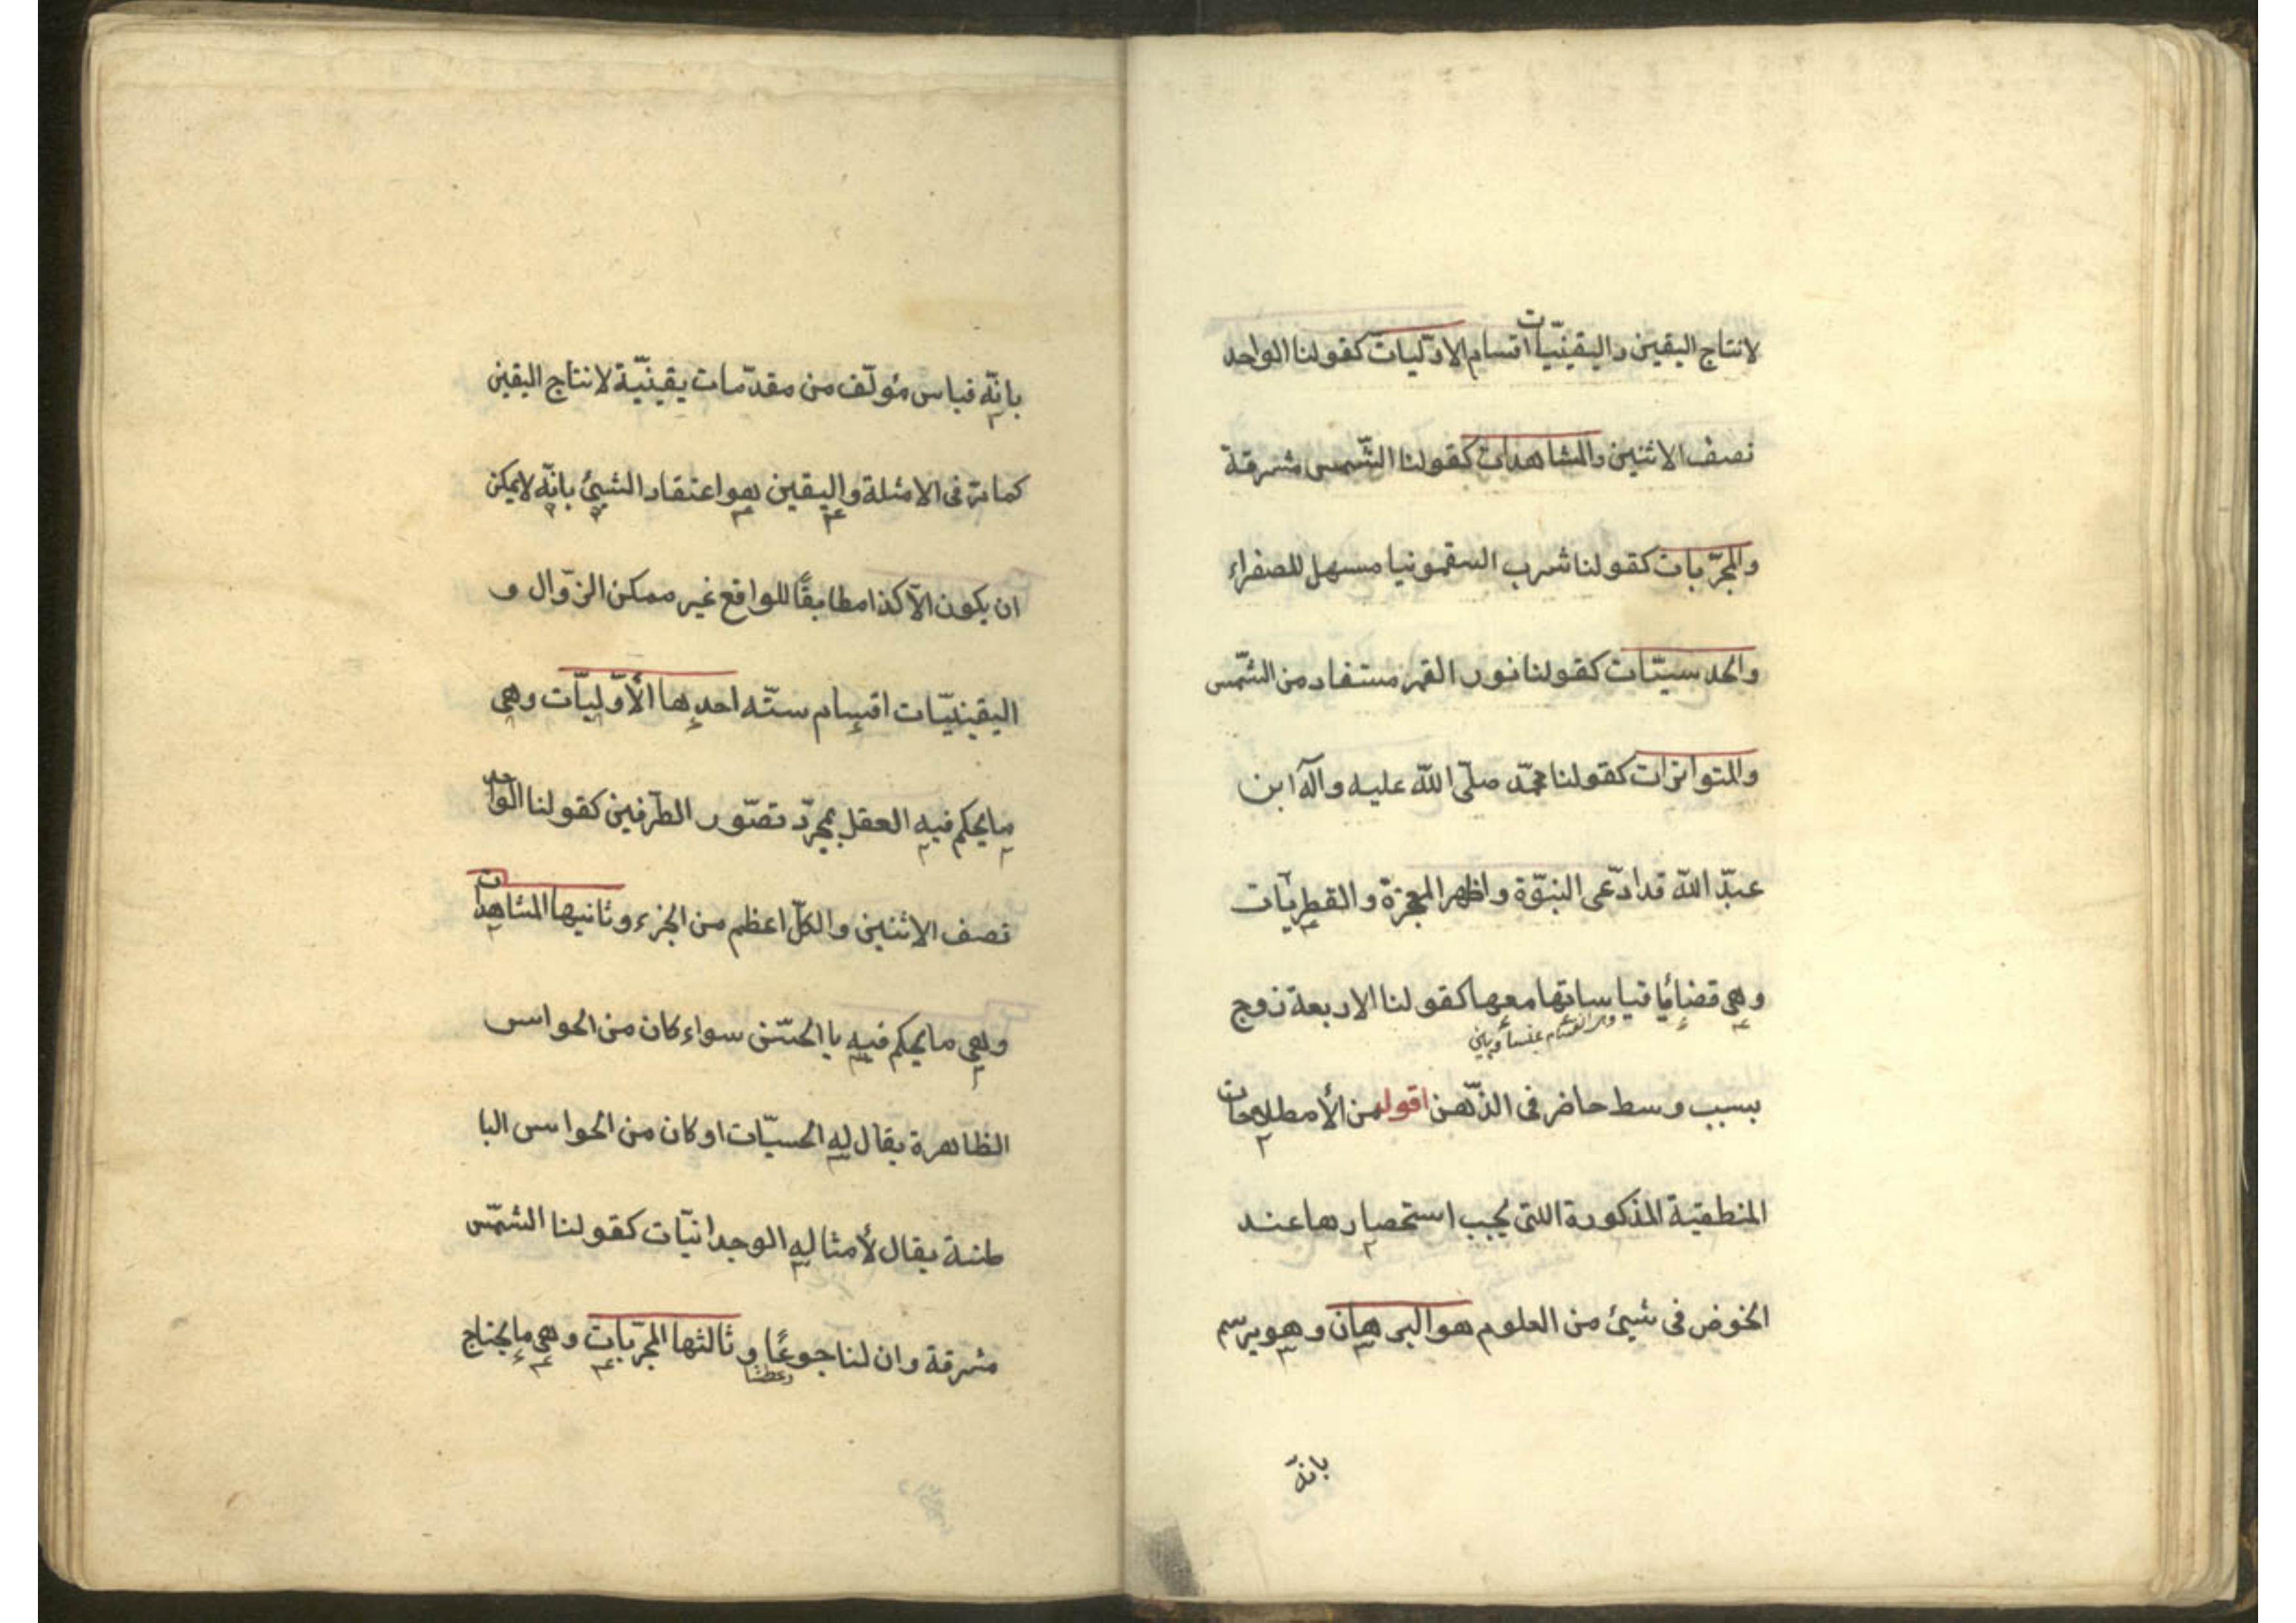 لانتاج اليقين واليقينيّات اقسام الاوّليات كقولنا الواحد
نصف الاثنين والمشاهدات كقولنا الشّمس مشرقة
والمجرّبات كقولنا شرب السقمونيا مسهل للصفراء
والحدسيّات كقولنا نور القمر مستفاد من الشّمس
والمتواترات كقولنا محمّد صلّى اللّه عليه وآله ابن
عبد اللّه قد ادّعى النبوّة واظهر المعجزة والقطريات
وهى قضايا قياساتها معها كقولنا الاربعة زوج
بسبب وسط حاضر فى الذّهن اقول من الأمطلاحات
المنطقية المذكورة اللتى يجب استحصارها عند
الخوض فى شيئ من العلوم هو البرهان وهو يرسم
بانّه
بانّه قياس مؤلّف من مقدّمات يقينيّة لانتاج اليقين
كما مرّ فى الامثلة واليقين هو اعتقاد الشيئ بانّه لايمكن
ان يكون الّا كذا مطابقًا للواقع غير ممكن الزّوال و
اليقينيّات اقسام ستّه احديها الأوّليّات وهى
مايحكم فيه العقل بمجرّد تصّور الطّرفين كقولنا الواحد
نصف الاثنين والكلّ اعظم من الجزء وثانيها المشاهدات
وهى مايحكم فيه باالحسّ سواء كان من الحواس
الظاهرة يقال له الحسيّات اوكان من الحواس البا
طنة يقال لأمثاله الوجدانيّات كقولنا الشّمس
مشرقة وان لنا جوعًا وعطشا وثالثها المجرّبات وهى مايحتاج